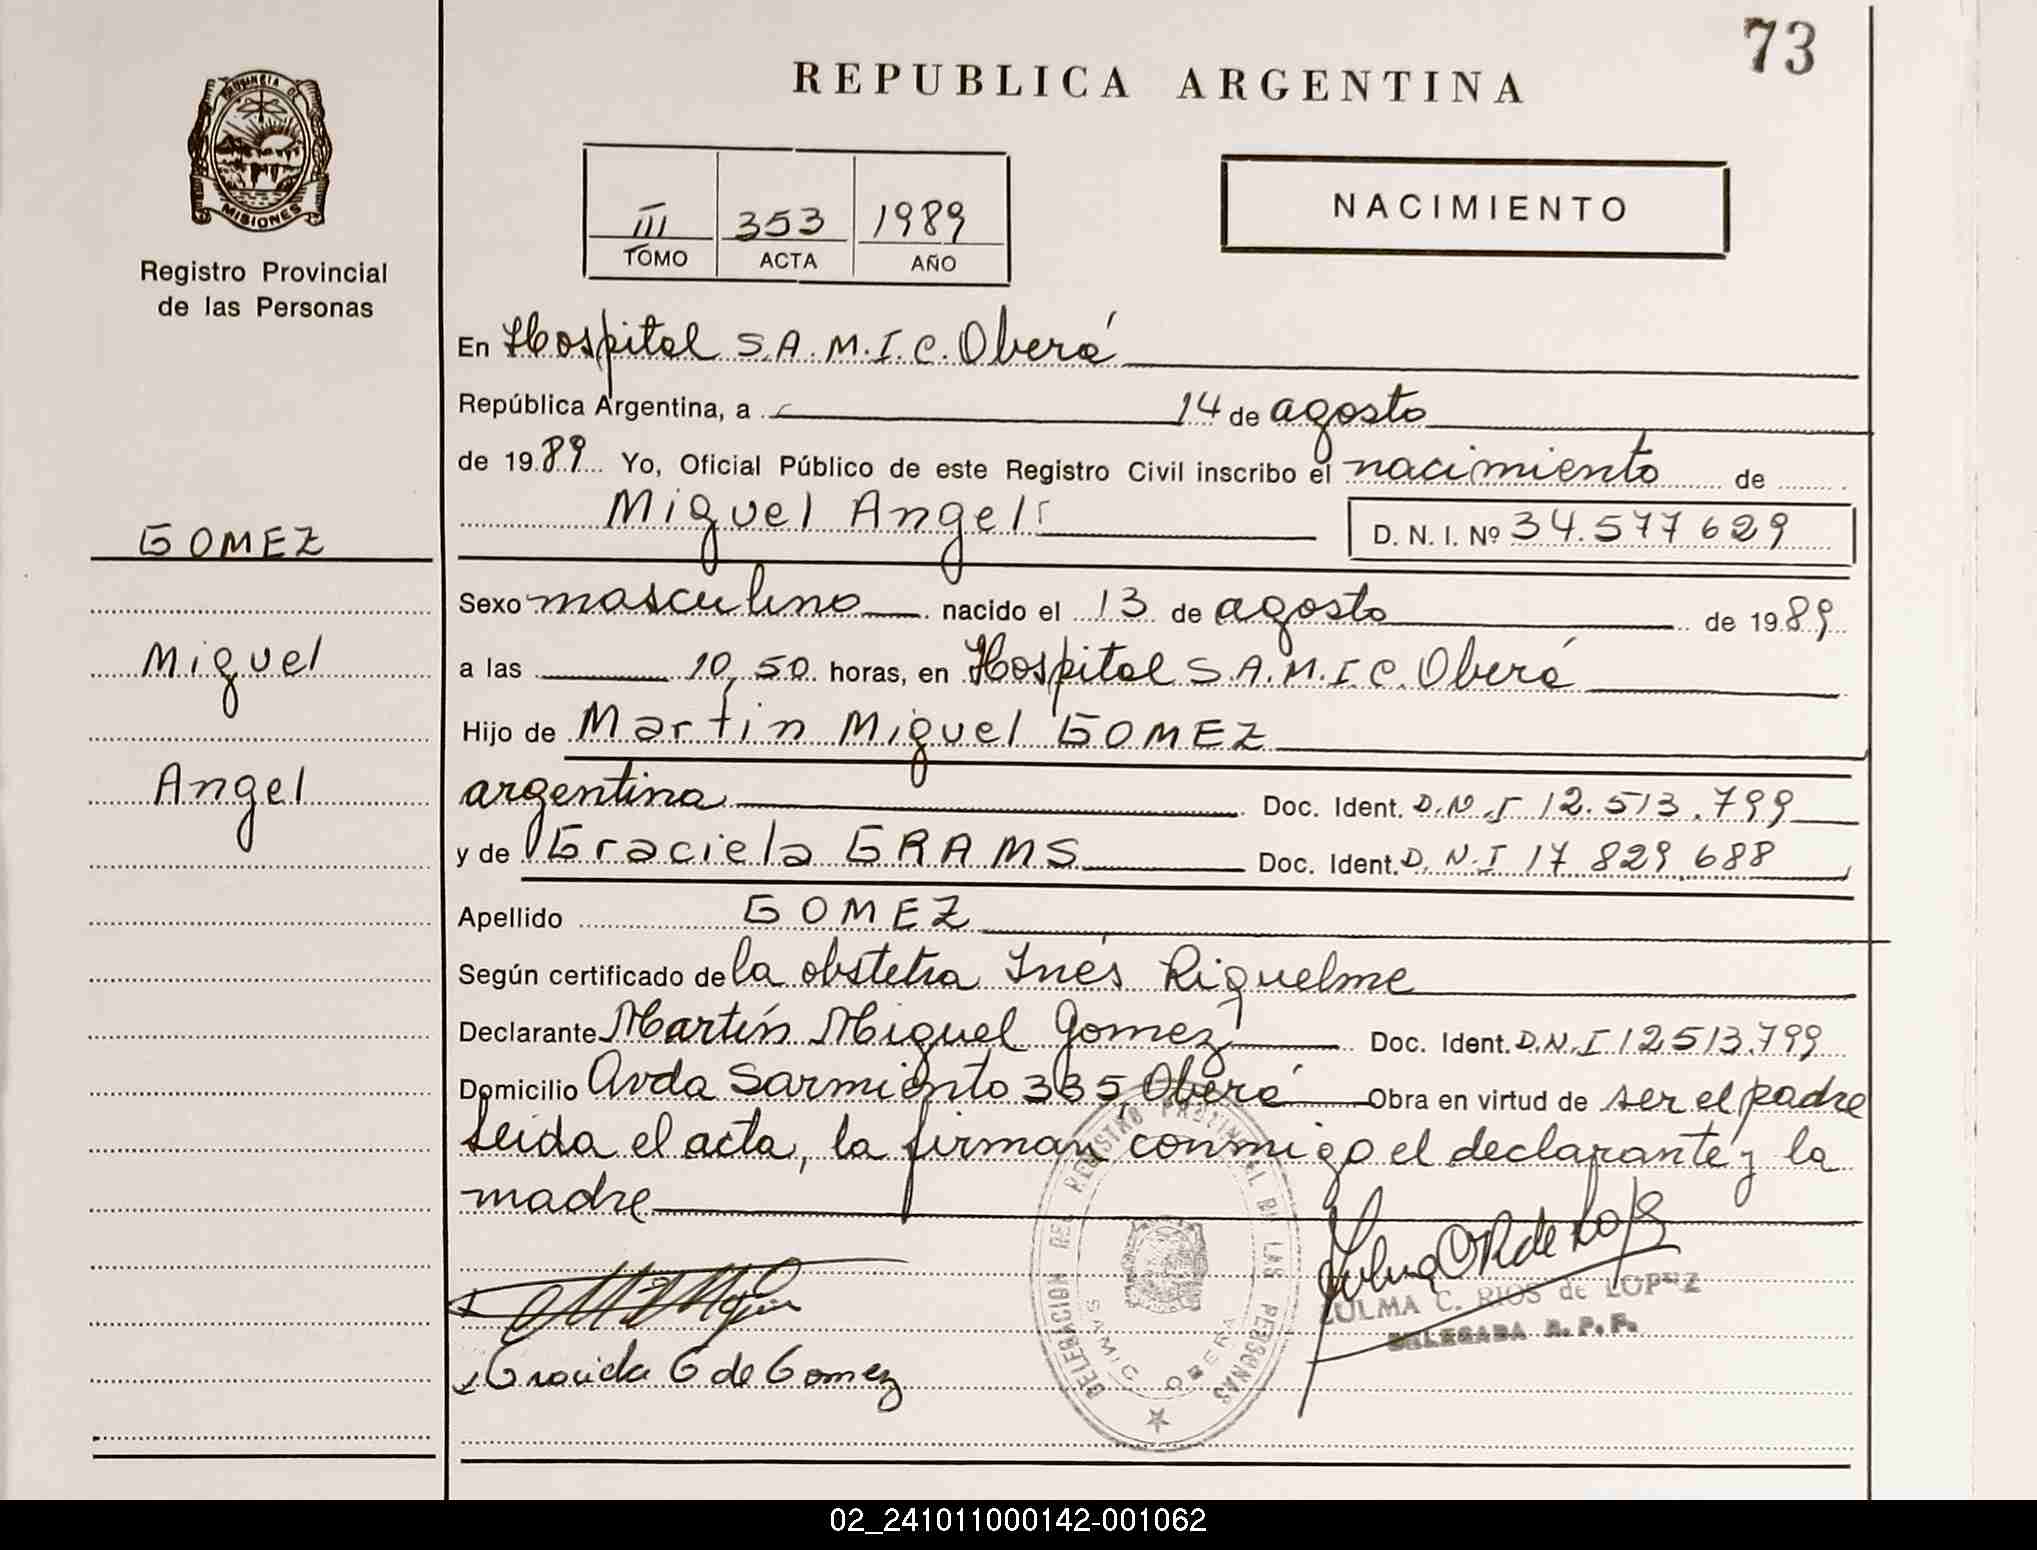 73
REPUBLICA ARGENTINA
PROVINCIA DE
MISIONES
Registro Provincial
de las Personas
III 353 1989
TOMO ACTA AÑO
NACIMIENTO
En Hospital S.A.M.I.C. Oberá
República Argentina, a 14 de agosto
de 1989 Yo, Oficial Público de este Registro Civil inscribo el nacimiento de
Miguel Angel
D. N. I. Nº 34.577629
GOMEZ
Miguel
Angel
Sexo masculino nacido el 13 de agosto de 1989
a las 10,50 horas, en Hospital S.A.M.I.C. Oberá
Hijo de Martín Miguel GOMEZ
argentina Doc. Ident. D.N.I 12.513.799
y de Graciela GRAMS Doc. Ident. D.N.I 17 829.688
Apellido GOMEZ
Según certificado de la obstetra Inés Riquelme
Declarante Martín Miguel Gomez Doc. Ident. D.N.I 12513.799
Domicilio Avda Sarmiento 335, Oberá Obra en virtud de ser el padre
Leída el acta, la firman conmigo el declarante y la
madre
Graciela G de Gomez
DELEGACION DEL REGISTRO PROVINCIAL DE LAS PERSONAS
SAMIC OBERA
ZULMA C. RIOS de LOPEZ
DELEGADA R. P. P.
02_241011000142-001062